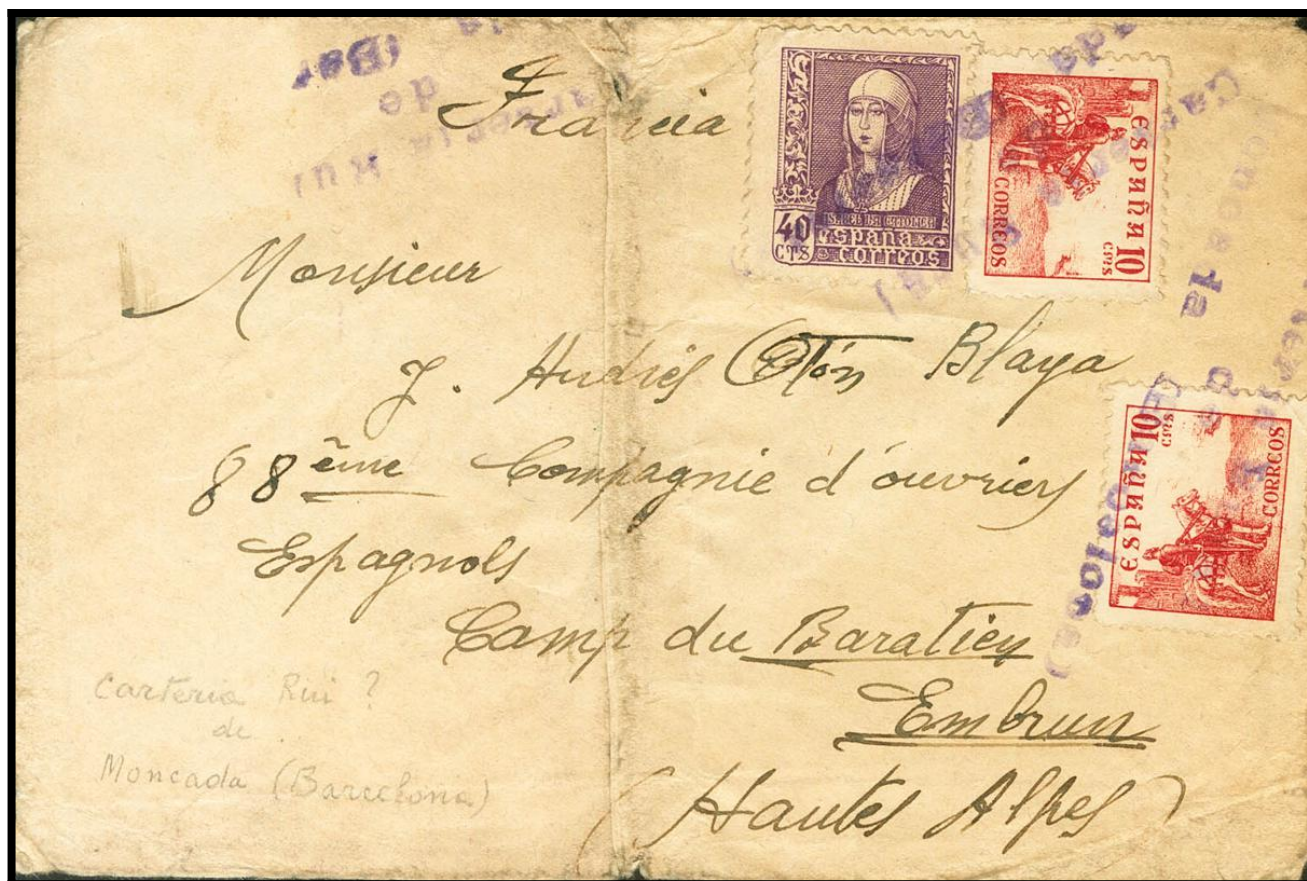 Francia
ISABEL LA CATOLICA
40 CTS
españa
correos
ESPAÑA 10 CTMS
CORREOS
Monsieur
J. Andrés Otón Blaya
88ème Compagnie d'ouvriers
Espagnols
ESPAÑA 10 CTMS
CORREOS
Camp du Baratier
Embrun
(Hautes Alpes)
Carteria Rui ?
de
Moncada (Barcelona)